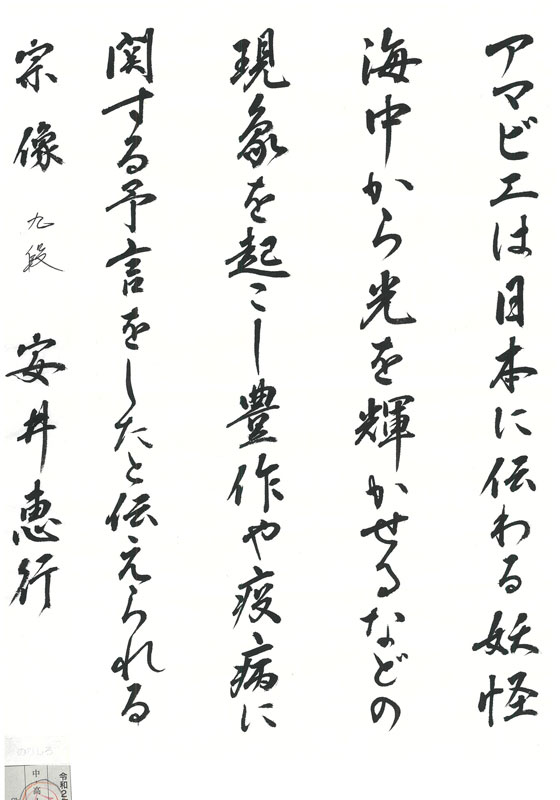 アマビエは日本に伝わる妖怪
海中から光を輝かせるなどの
現象を起こし豊作や疫病に
関する予言をしたと伝えられる
宗像 九段 安井恵行
令和2
中高